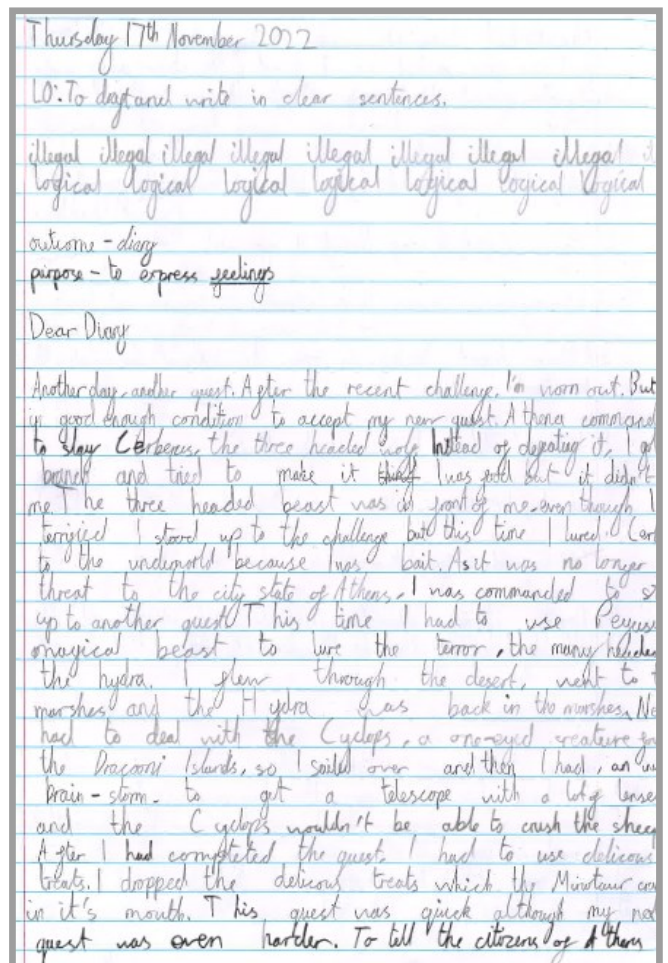 Thursday 17th November 2022
LO: To draft and write in clear sentences.
illegal illegal illegal illegal illegal illegal illegal illegal
logical logical logical logical logical logical logical
outcome - diary
purpose - to express feelings
Dear Diary
Another day, another quest. After the recent challenge, I'm worn out. But
in good enough condition to accept my new quest. Athena command
to slay Cerberus, the three headed wolf Instead of defeating it, I
branch and tried to make it I was food but it didn't
me. The three headed beast was in front of me - even though I
terrified I stood up to the challenge but this time I lured
to the underworld because I was bait. As it was no longer
threat to the city state of Athens, I was commanded to
up to another quest This time I had to use
magical beast to lure the terror, the many headed
the hydra. I flew through the desert, went to
marshes and the Hydra was back in the marshes.
had to deal with the Cyclops, a one-eyed creature
the Dracooni Islands, so I sailed over and then I had, an
brain-storm - to get a telescope with a lot of lense
and the Cyclops wouldn't be able to crush the sheep
After I had completed the quest, I had to use delicous
treats. I dropped the delicous treats which the Minotaur
in it's mouth. This quest was quick although my
quest was even harder. To tell the citozens of Athens